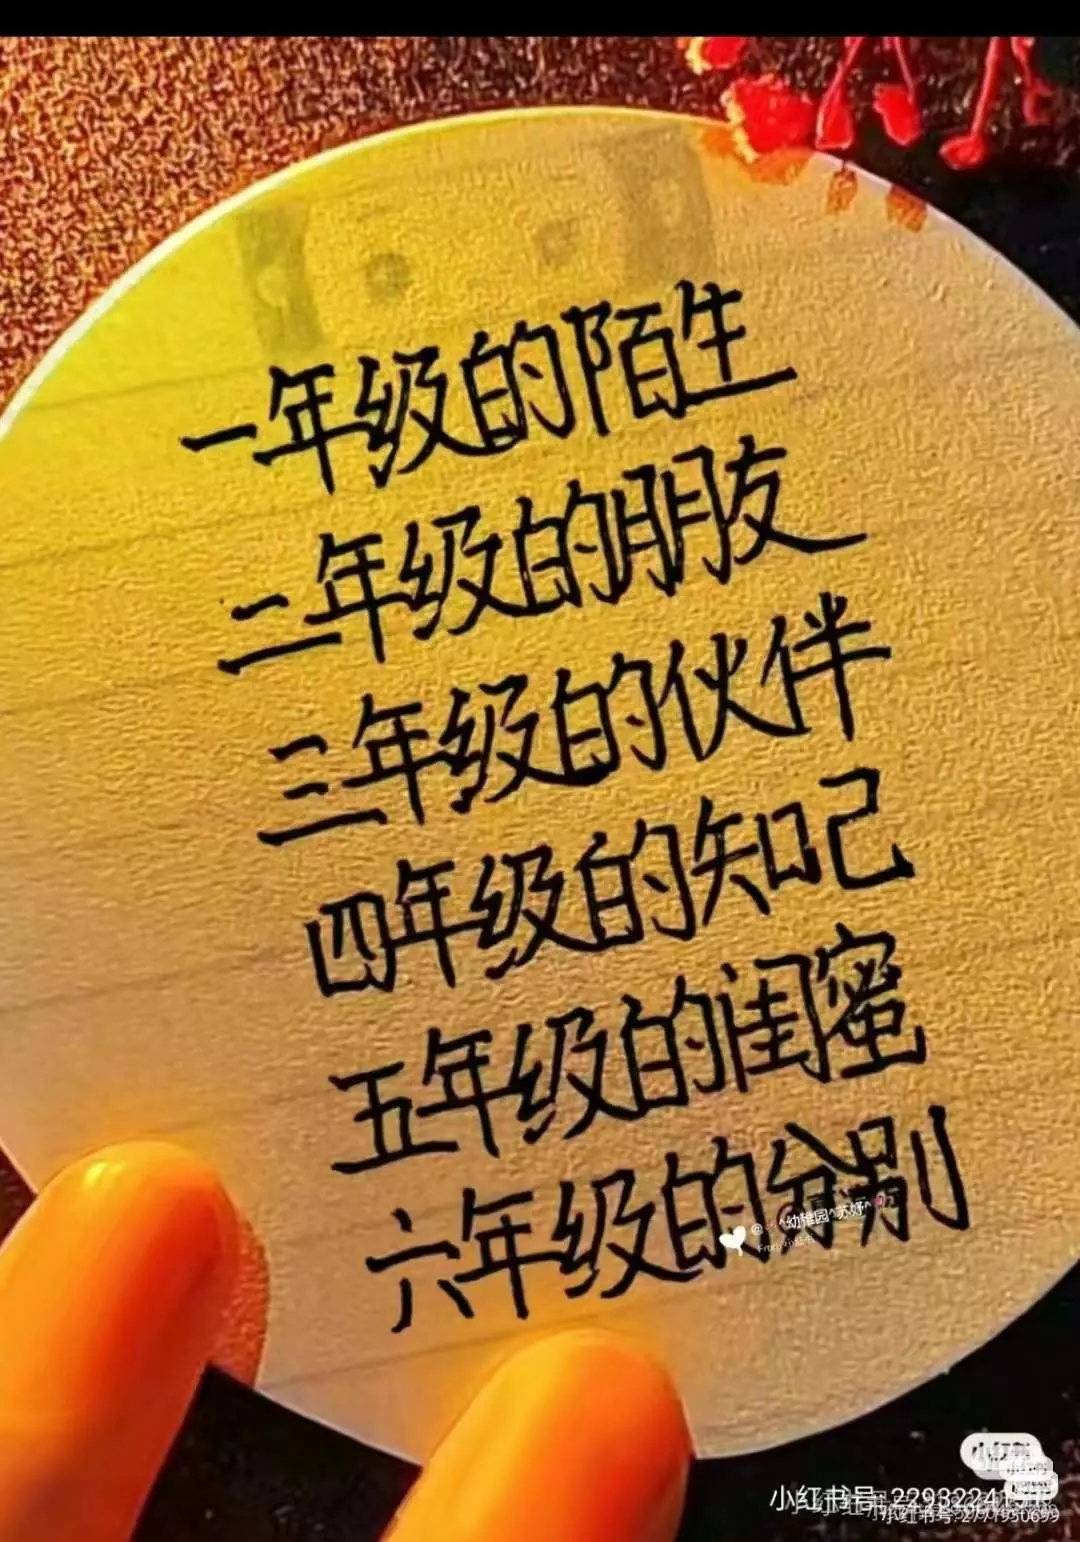 一年级的陌生
二年级的朋友
三年级的伙伴
四年级的知己
五年级的闺蜜
六年级的分别
^幼稚园^苏妤^
小红书
小红书号: 229322415
小红书号: 2771950699